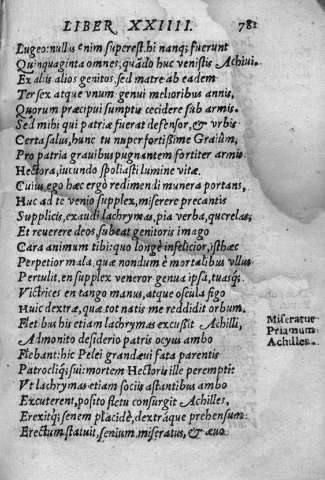 LIBER XXIIII. 781
Lugeo: nullus enim superest. hi nanq; fuerunt
Quinquaginta omnes, quādo huc venistis Achiui.
Ex aliis alios genitos, sed matre ab eadem
Ter sex atque vnum genui melioribus annis,
Quorum præcipui sumptis cecidere sub armis.
Sed mihi qui patriæ fuerat defensor, & vrbis
Certa salus, hunc tu nuper fortißime Graiûm,
Pro patria grauibus pugnantem fortiter armis
Hectora, iucundo spoliasti lumine vitæ.
Cuius ego hæc ergo redimendi munera portans,
Huc ad te venio supplex, miserere precantis
Supplicis, exaudi lachrymas, pia verba, querelas;
Et reuerere deos, subeat genitoris imago
Cara animum tibi: quo longè infelicior, isthæc
Perpetior mala, quæ nondum è mortalibus vllus
Pertulit. en supplex veneror genua ipsa, tuasq́;
Victrices en tango manus, atque oscula figo
Huic dextræ, quæ tot natis me reddidit orbum.
Flet. bus his etiam lachrymas excußit Achilli,
Admonito desiderio patris ocyus ambo
Flebant: hic Pelei grandæui fata parentis
Patrocliq́; sui: mortem Hectoris ille perempti:
Vt lachrymas etiam sociis astantibus ambo
Excuterent, posito fletu consurgit Achilles,
Erexitq́; senem placidè, dextráque prehensum
Erectum statuit, senium, miseratus, & æuo
Miseratur
Priamum
Achilles.